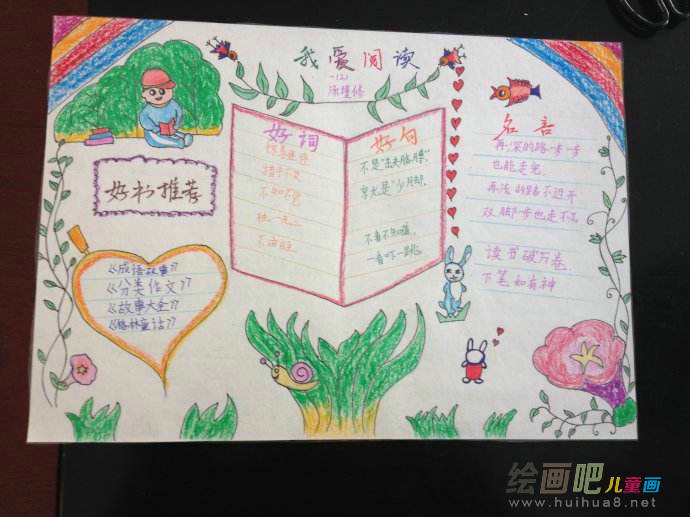 我爱阅读
好书推荐
《成语故事》
《分类作文》
《故事大全》
《格林童话》
好词
措手不及
不知不觉
独一无二
好句
不是"丢头脑".
不看不知道,
一看吓一跳
名言
再深的路一步一
步也能走完,
再短的路不迈开
双脚一步也走不了
读书破万卷,
下笔如有神
绘画吧儿童画
www.huihua8.net